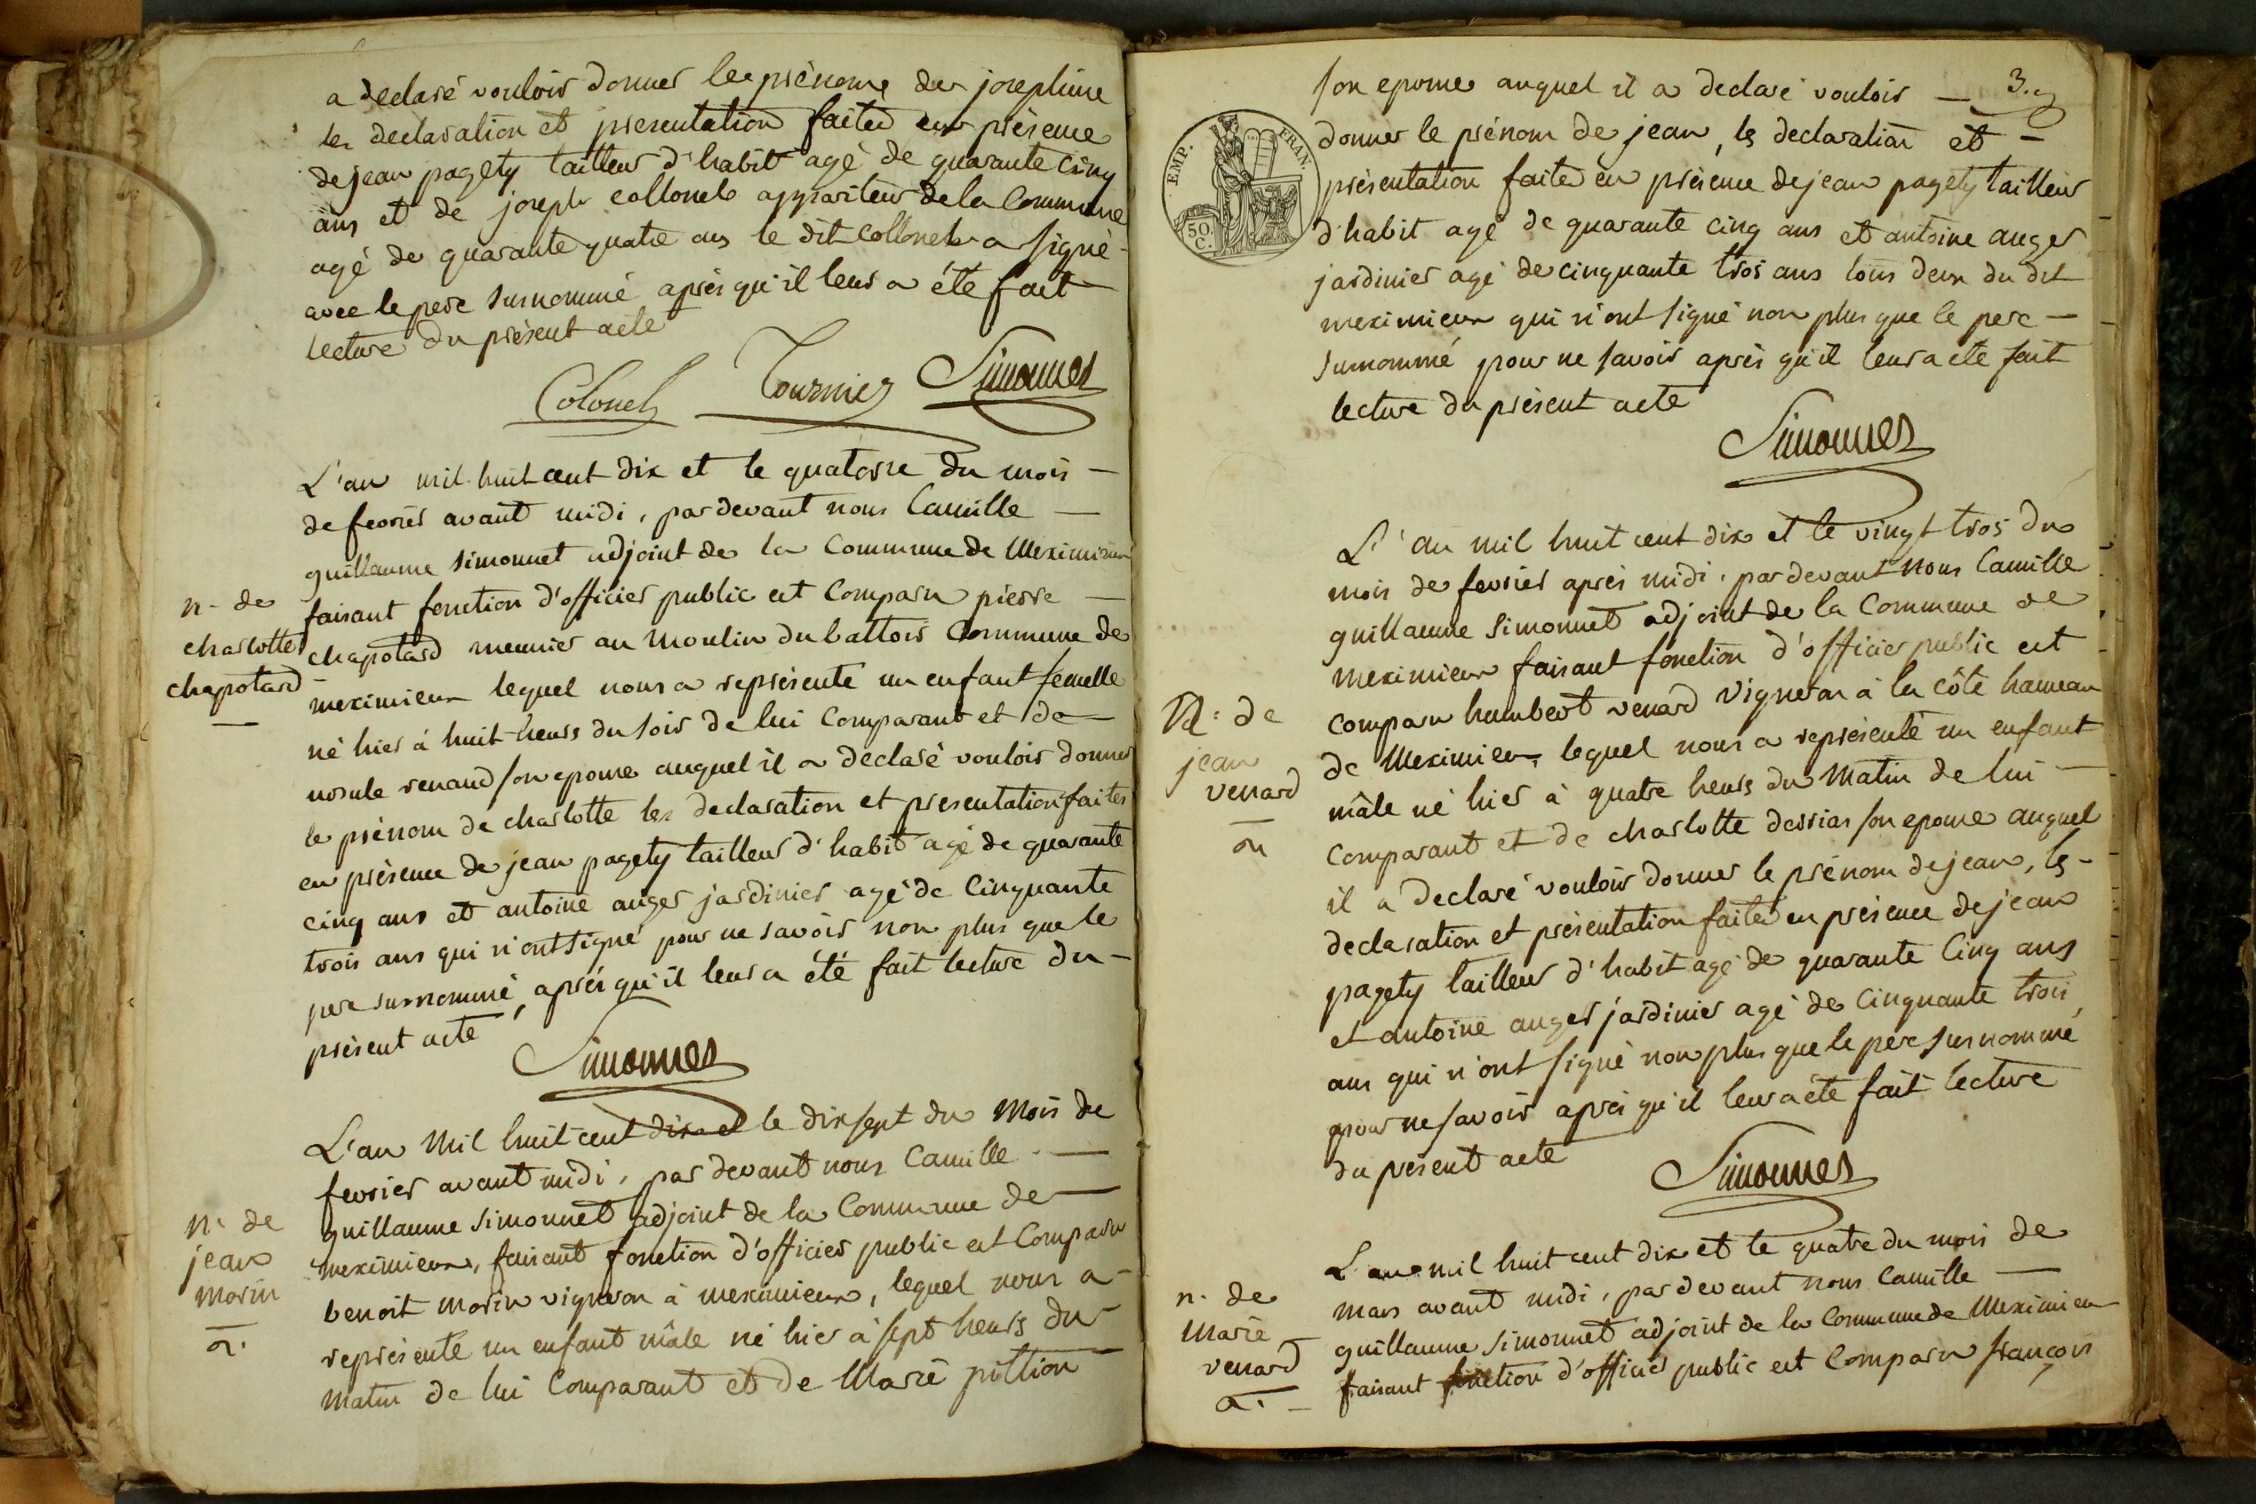 a declaré vouloir donner les prénoms de josephine
les declaration et presentation faites en présence
de jean pagety tailleur d'habit agé de quarante cinq
ans et de joseph collonel appariteur de la Commune
agé de quarante quatre ans le dit collonel a signé
avec le pere surnommé après qu'il leur a été fait
lecture du présent acte
Colonel Tournier Simonnet
L'an mil huit cent dix et le quatorze du mois —
de fevrier avant midi, par devant nous Camille —
guillaume simonnet adjoint de la Commune de Meximieux
faisant fonction d'officier public est Comparu pierre —
n. de
charlotte
chapotard
chapotard meunier au Moulin du battoir Commune de
meximieux lequel nous a représenté un enfant femelle
né hier à huit heurs du soir de lui Comparant et de —
ursule renaud son epouse auquel il a declaré vouloir donner
le prénom de charlotte les declaration et presentation faites
en présence de jean pagety tailleur d'habit agé de quarante
cinq ans et antoine auger jardinier agé de Cinquante
trois ans qui n'ont signé pour ne savoir non plus que le
pere surnommé, après qu'il leur a été fait lecture du —
présent acte
Simonnet
L'an Mil huit cent dix et le dix sept du Mois de
fevrier avant midi, par devant nous Camille —
guillaume simonnet adjoint de la Commune de —
n. de
jean
morin
meximieux, faisant fonction d'officier public est Comparu
benoit morin vigneron à meximieux, lequel nous a —
représenté un enfant mâle né hier à sept heurs du —
matin de lui Comparant et de Marie pittion
3.
son epouse auquel il a declaré vouloir —
EMP. FRAN.
50 C.
donner le prénom de jean, les declaration et —
présentation faite en présence de jean pagety tailleur
d'habit agé de quarante cinq ans et antoine auger
jardinier agé de cinquante trois ans tous deux du dit
meximieux qui n'ont signé non plus que le pere —
surnommé pour ne savoir après qu'il leur a eté fait
lecture du présent acte
Simonnet
L'an mil huit cent dix et le vingt trois du
mois de fevrier après midi, par devant nous Camille
guillaume simonnet adjoint de la Commune de
meximieux faisant fonction d'officier public est
N. de
jean
venard
comparu humbert venard vigneron à la côte hameau
de Meximieux, lequel nous a représenté un enfant
mâle né hier à quatre heurs du Matin de lui —
Comparant et de charlotte dessias son epouse auquel
il a declaré vouloir donner le prénom de jean, les —
declaration et présentation faite en présence de jean
pagety tailleur d'habit agé de quarante Cinq ans
et antoine auger jardinier agé de Cinquante trois
ans qui n'ont signé non plus que le pere surnommé
pour ne savoir après qu'il leur a été fait lecture
du présent acte
Simonnet
L'an mil huit cent dix et le quatre du mois de
n. de
Marie
venard
mars avant midi, par devant nous Camille —
guillaume simonnet adjoint de la Commune de Meximieux
faisant fonction d'officier public est Comparu françois